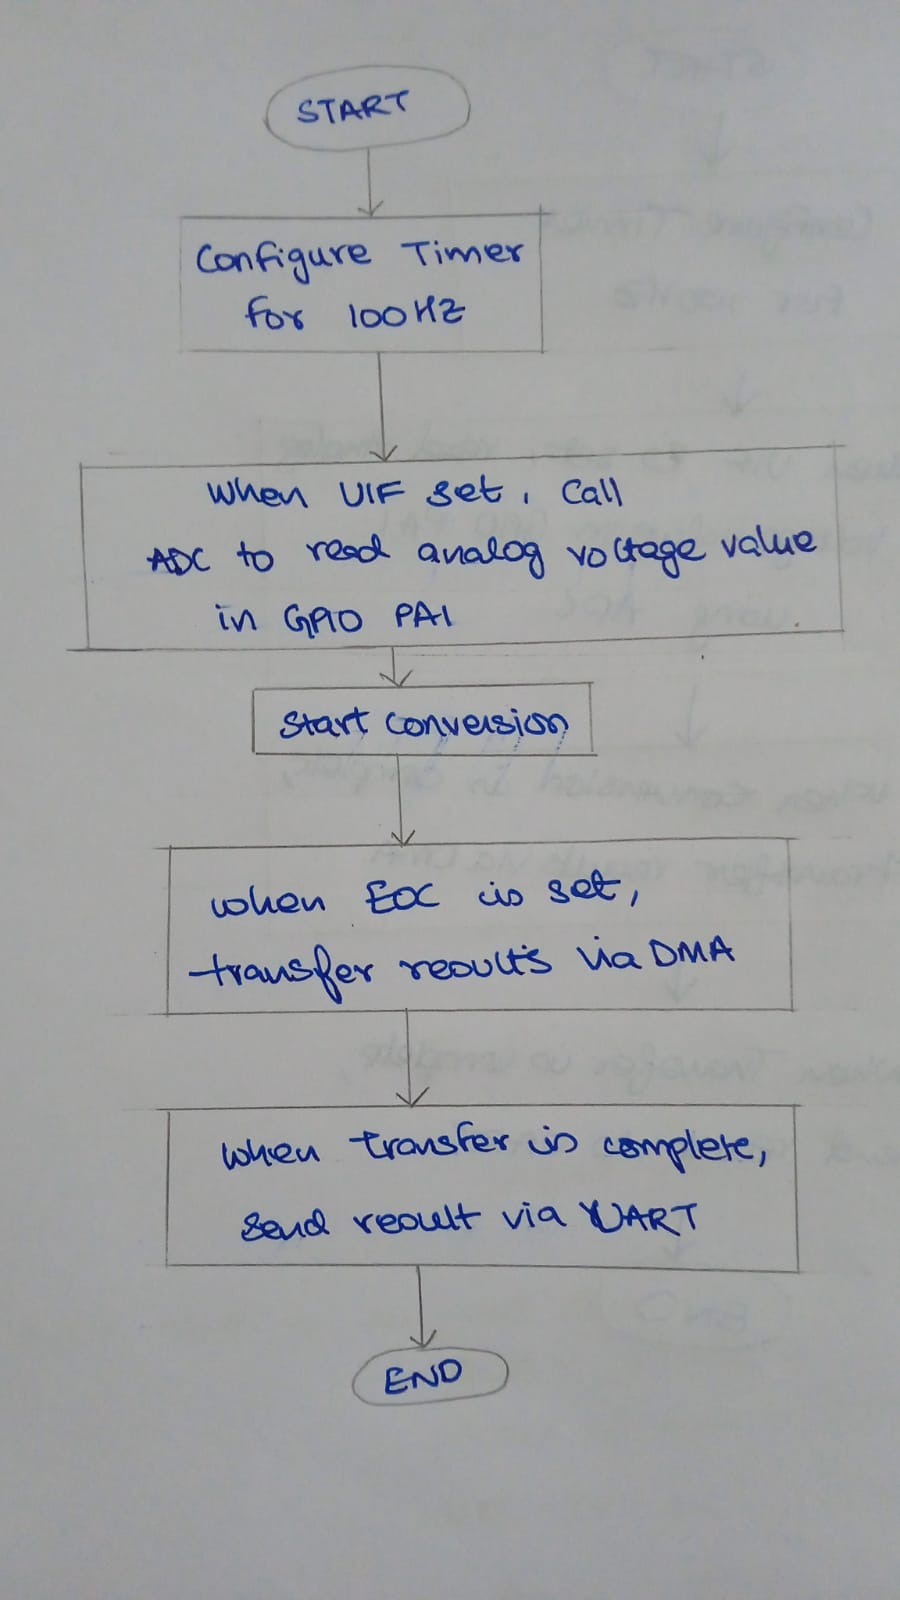 START
Configure Timer
for 100HZ
When UIF set, Call
ADC to read analog voltage value
in GPIO PA1
Start conversion
when EOC is set,
transfer results via DMA
when transfer is complete,
Send result via UART
END